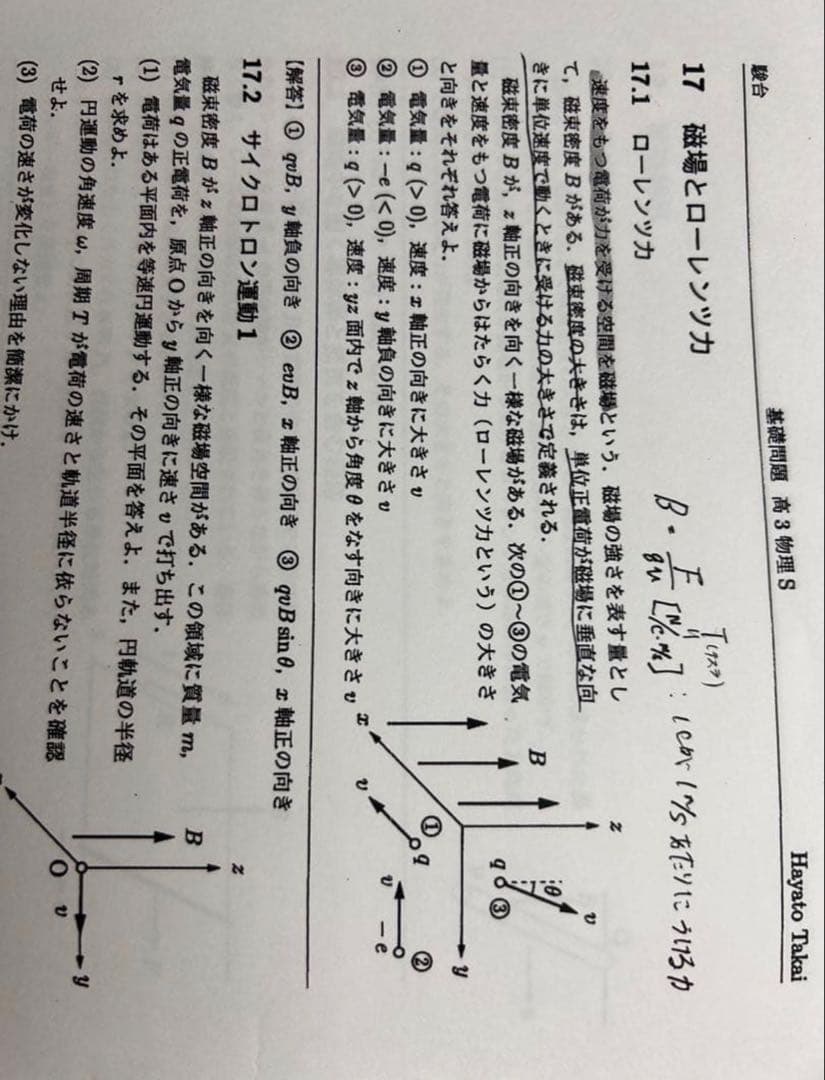 駿台
基礎問題 高3物理S
Hayato Takai
17 磁場とローレンツ力
17.1 ローレンツ力
B = F/qv [N/C·m/s] : 1Cが 1m/sあたりにうける力
T(テスラ)
速度をもつ電荷が力を受ける空間を磁場という．磁場の強さを表す量とし
て，磁束密度 B がある．磁束密度の大きさは，単位正電荷が磁場に垂直な向
きに単位速度で動くときに受ける力の大きさで定義される．
磁束密度 B が，z 軸正の向きを向く一様な磁場がある．次の①～③の電気
量と速度をもつ電荷に磁場からはたらく力（ローレンツ力という）の大きさ
と向きをそれぞれ答えよ．
① 電気量：q (> 0)，速度：x 軸正の向きに大きさ v
② 電気量：−e (< 0)，速度：y 軸負の向きに大きさ v
③ 電気量：q (> 0)，速度：yz 面内で z 軸から角度 θ をなす向きに大きさ v
z
B
q
θ
v
③
①
q
v
x
y
②
v
−e
【解答】① qvB，y 軸負の向き ② evB，x 軸正の向き ③ qvB sin θ，x 軸正の向き
17.2 サイクロトロン運動1
磁束密度 B が z 軸正の向きを向く一様な磁場空間がある．この領域に質量 m，
電気量 q の正電荷を，原点 O から y 軸正の向きに速さ v で打ち出す．
(1) 電荷はある平面内を等速円運動する．その平面を答えよ．また，円軌道の半径
r を求めよ．
(2) 円運動の角速度 ω，周期 T が電荷の速さと軌道半径に依らないことを確認
せよ．
(3) 電荷の速さが変化しない理由を簡潔にかけ．
z
B
O
v
y